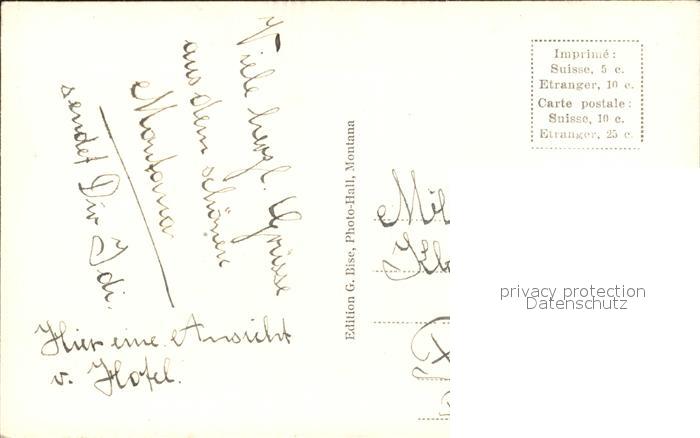 Viele herzl. Grüsse
aus dem schönen
Montana
sendet Dir Idi.
Hier eine Ansicht
v. Hotel.
Edition G. Bise, Photo-Hall, Montana
Imprimé:
Suisse, 5 c.
Etranger, 10 c.
Carte postale:
Suisse, 10 c.
Etranger, 25 c.
privacy protection
Datenschutz